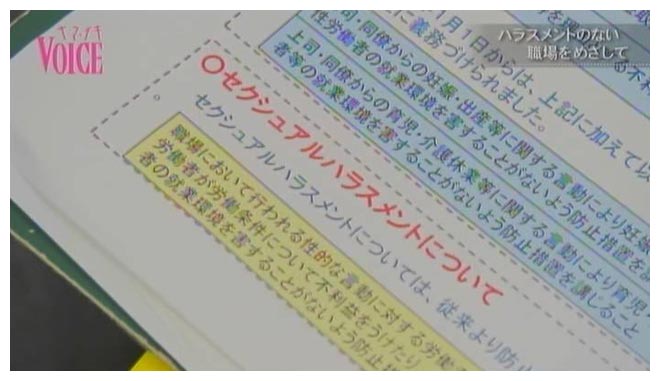 ヤマナギ
VOICE
ハラスメントのない
職場をめざして
1月1日からは、上記に加えて以
に義務づけられました。
上司・同僚からの妊娠・出産等に関する言動により妊娠
性労働者の就業環境を害することがないよう防止措置を
上司・同僚からの育児・介護休業等に関する言動により育児・
者等の就業環境を害することがないよう防止措置を講じること
〇セクシュアルハラスメントについて
セクシュアルハラスメントについては、従来より防止
職場において行われる性的な言動に対する労働
労働者が労働条件について不利益をうけたり
者の就業環境を害することがないよう防止措